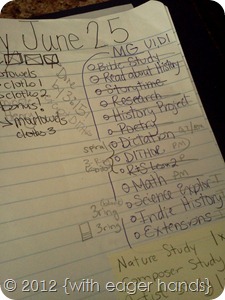 y June 25
towels
cloths 1
cloths 2
bonus!
Smartowels
cloths 3
MG
Bible Study
Read about History
Storytime
Research
History Project
Poetry
Dictation
DITHOR
Math
Science
Indie History
Extensions
3ring
3ring
Nature Study 1x
Composer Study
© 2012 {with eager hands}